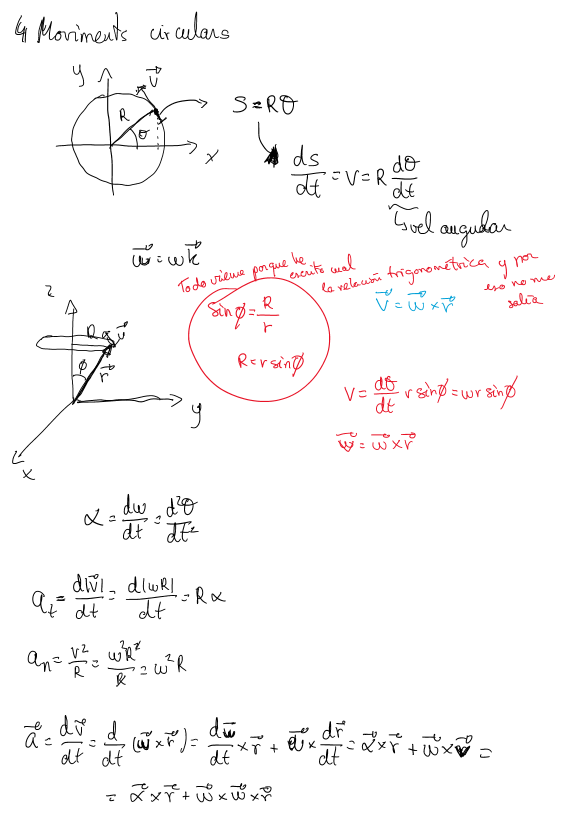 ↳ Moviments circulars
y
v⃗
R
θ
x
S = Rθ
ds/dt = V = R dθ/dt
↳ vel angular
w⃗ = wk⃗
Todo viene porque he escrito mal la relación trigonométrica y por eso no me salía
sinφ = R/r
R = r sinφ
V⃗ = w⃗ × r⃗
z
R
v⃗
φ
r⃗
y
x
V = dθ/dt r sinφ = wr sinφ
v⃗ = w⃗ × r⃗
α = dw/dt = d²θ/dt²
a_t = d|v⃗|/dt = d|wR|/dt = Rα
a_n = v²/R = w²R²/R = w²R
a⃗ = dv⃗/dt = d/dt (w⃗ × r⃗) = dw⃗/dt × r⃗ + w⃗ × dr⃗/dt = α⃗ × r⃗ + w⃗ × v⃗ =
= α⃗ × r⃗ + w⃗ × w⃗ × r⃗